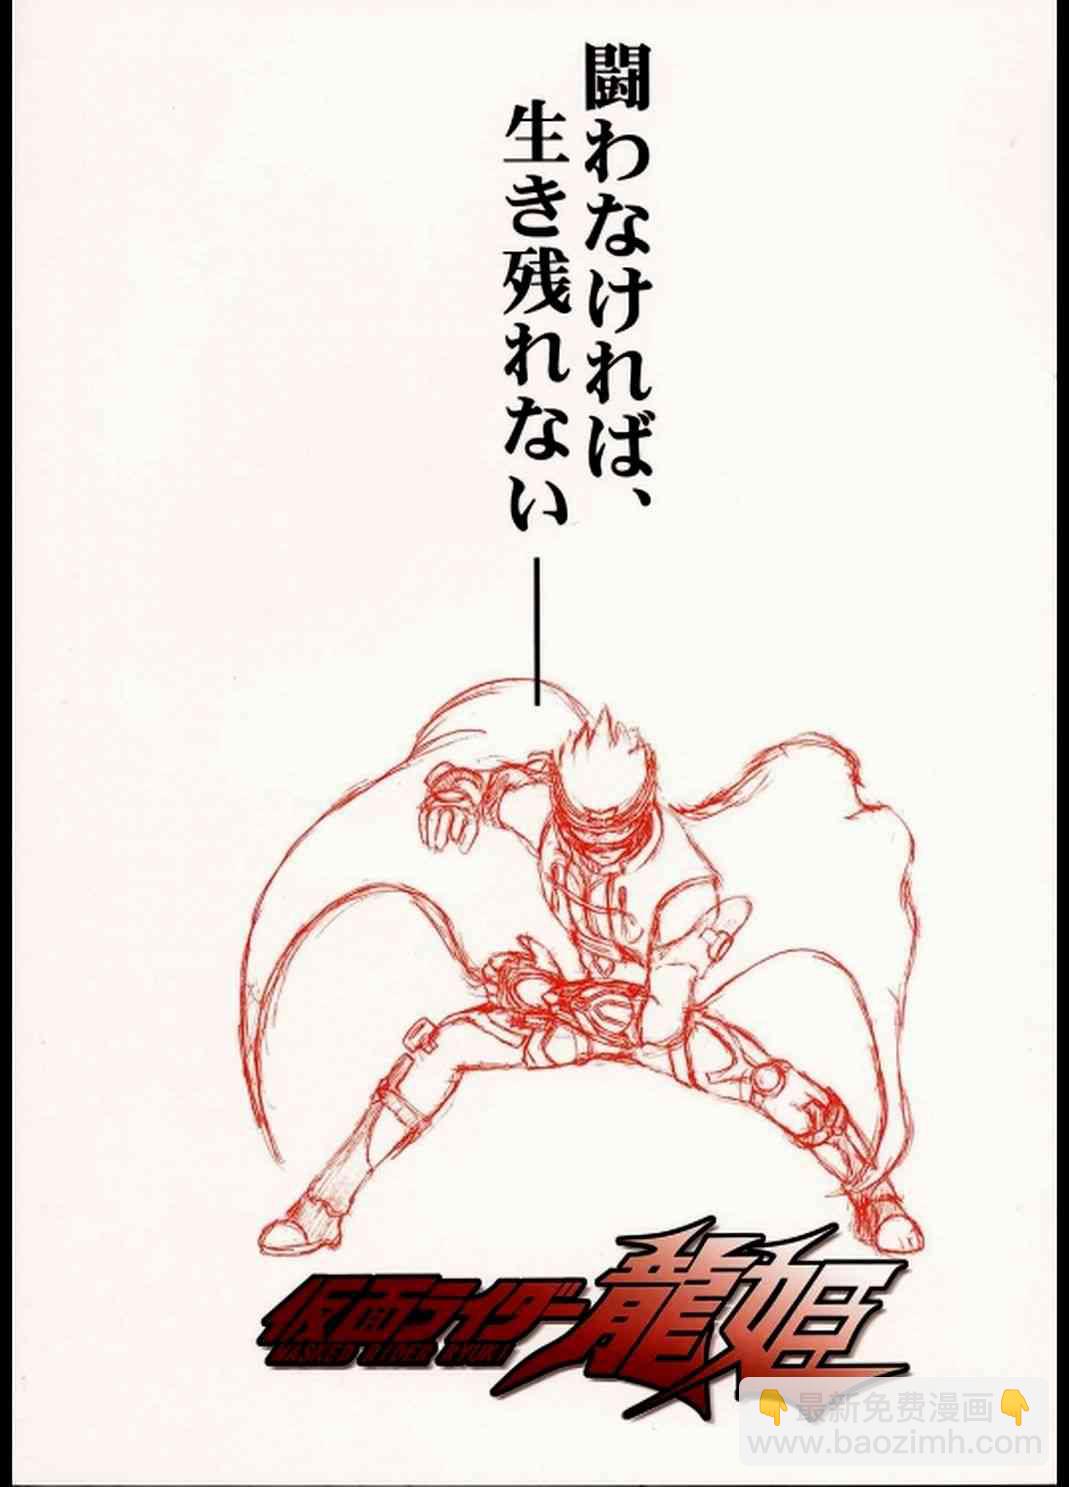 闘わなければ、
生き残れない――
仮面ライダー龍姫
MASKED RIDER RYUKI
👇最新免费漫画👇
www.baozimh.com